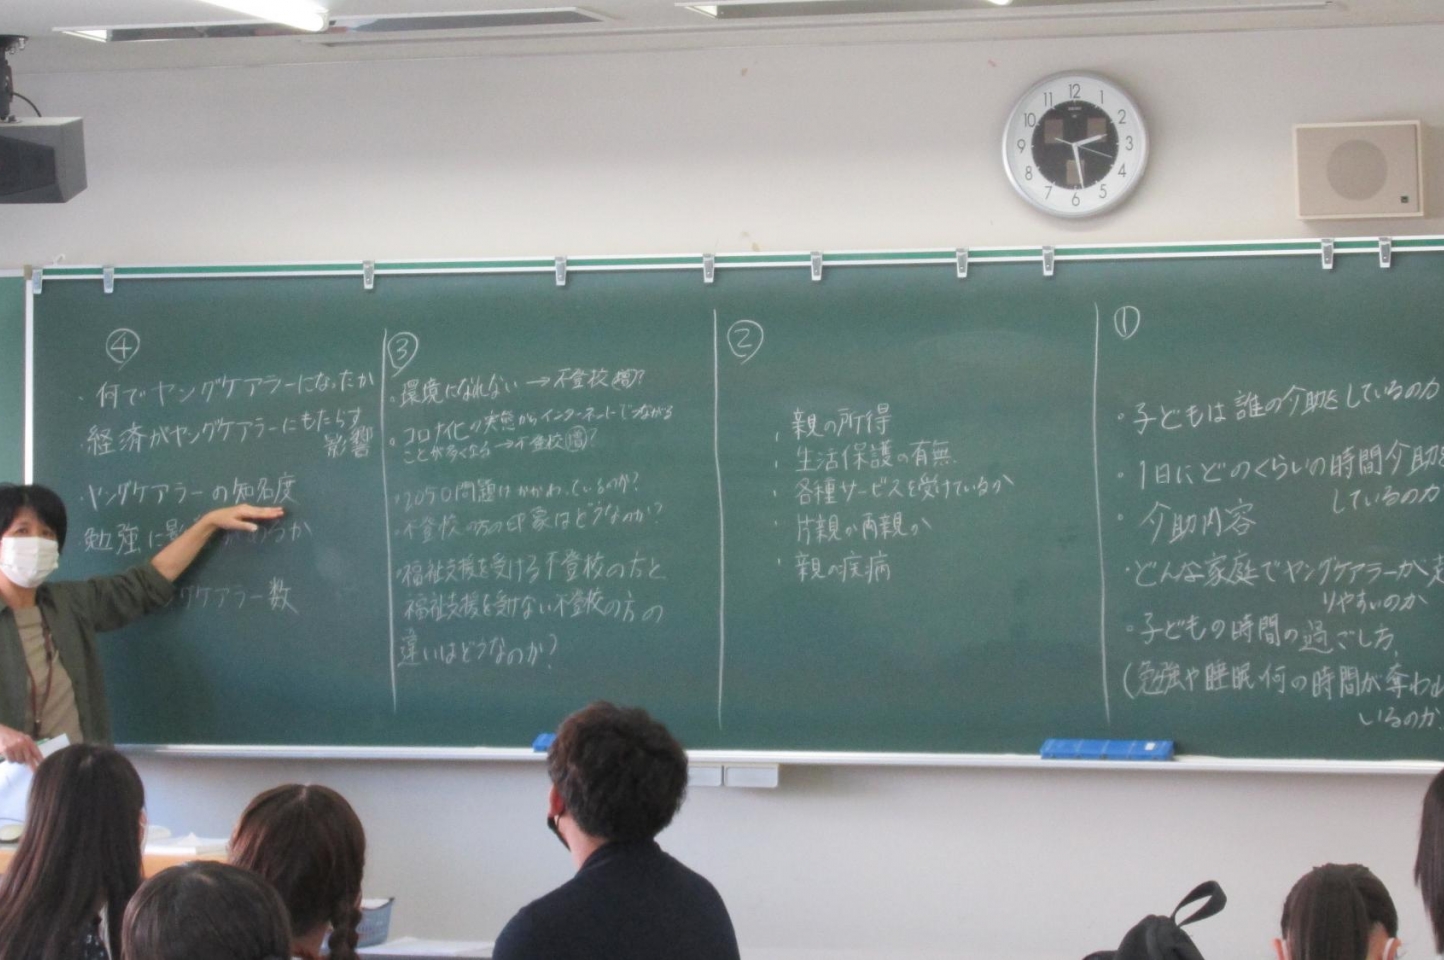 ④
・何でヤングケアラーになったか
・経済がヤングケアラーにもたらす
影響
・ヤングケアラーの知名度
勉強に影
るか
ケアラー数
③
・環境になれない→不登校増?
・コロナ化の実態からインターネットにつながる
ことが多くなる→不登校増?
・8050問題はかかわっているのか?
・不登校の方の印象はどうなのか?
・福祉支援を受ける不登校の方と
福祉支援を受けない不登校の方の
違いはどうなのか?
②
・親の所得
・生活保護の有無
・各種サービスを受けているか
・片親か両親か
・親の疾病
①
・子どもは誰の介助をしているのか
・1日にどのくらいの時間介助を
しているのか
・介助内容
・どんな家庭でヤングケアラーが起
りやすいのか
・子どもの時間の過ごし方
(勉強や睡眠、何の時間が奪われ
いるのか
12
1
2
3
4
5
6
7
8
9
10
11